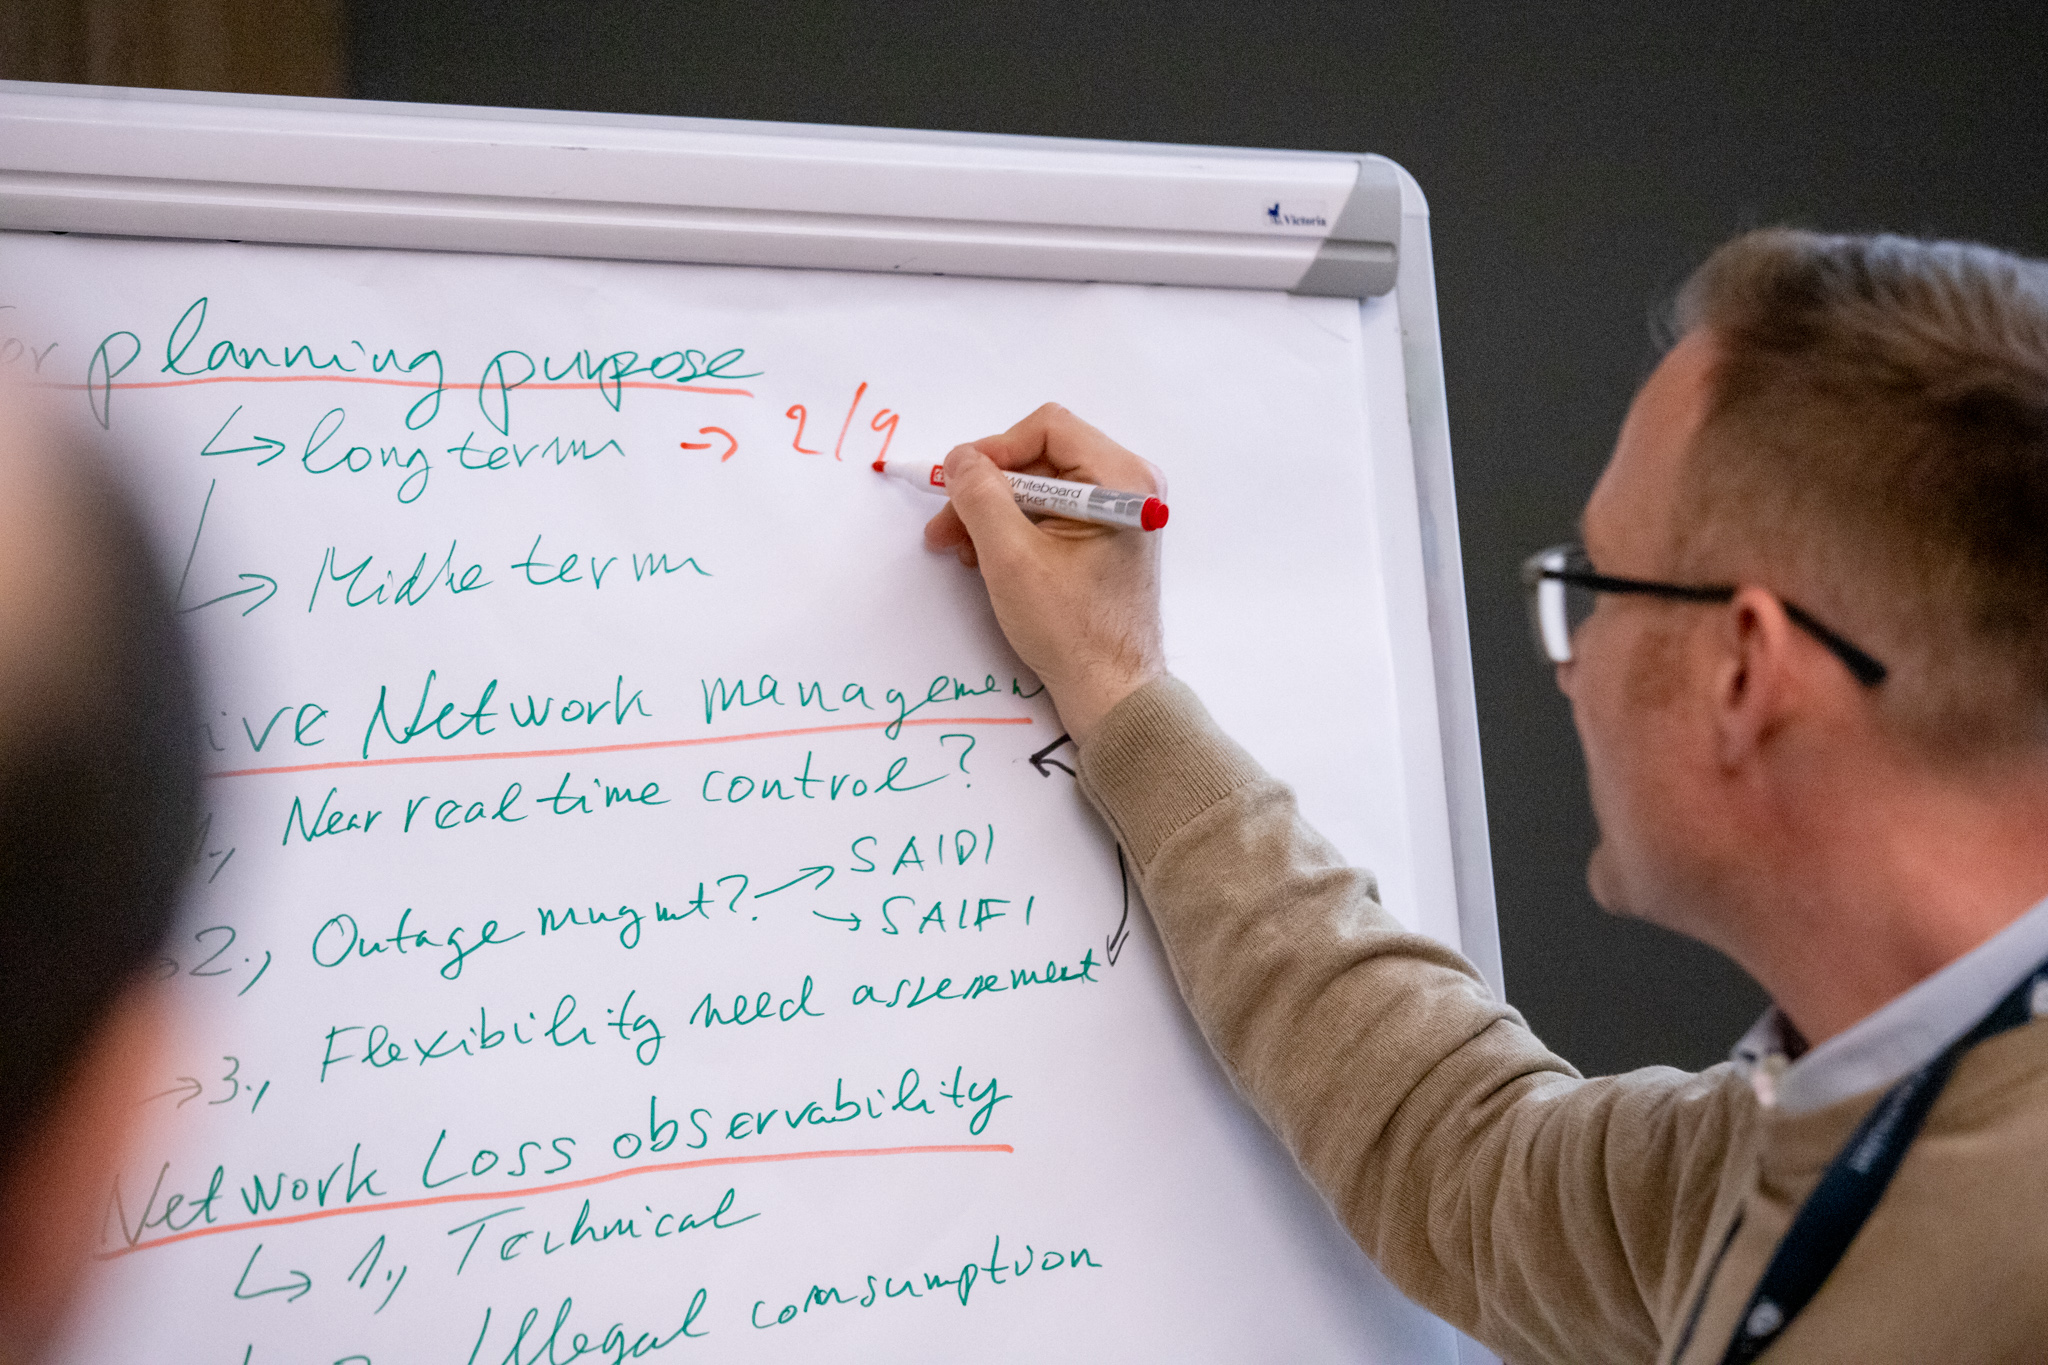 Victoria
or planning purpose
↳ long term → 2/9
→ Middle term
ive Network managemen
1., Near real time control?
2., Outage mngmt? → SAIDI
→ SAIFI
→ 3., Flexibility need assessment
Network Loss observability
↳ 1., Technical
Illegal consumption
Whiteboard
arker 750